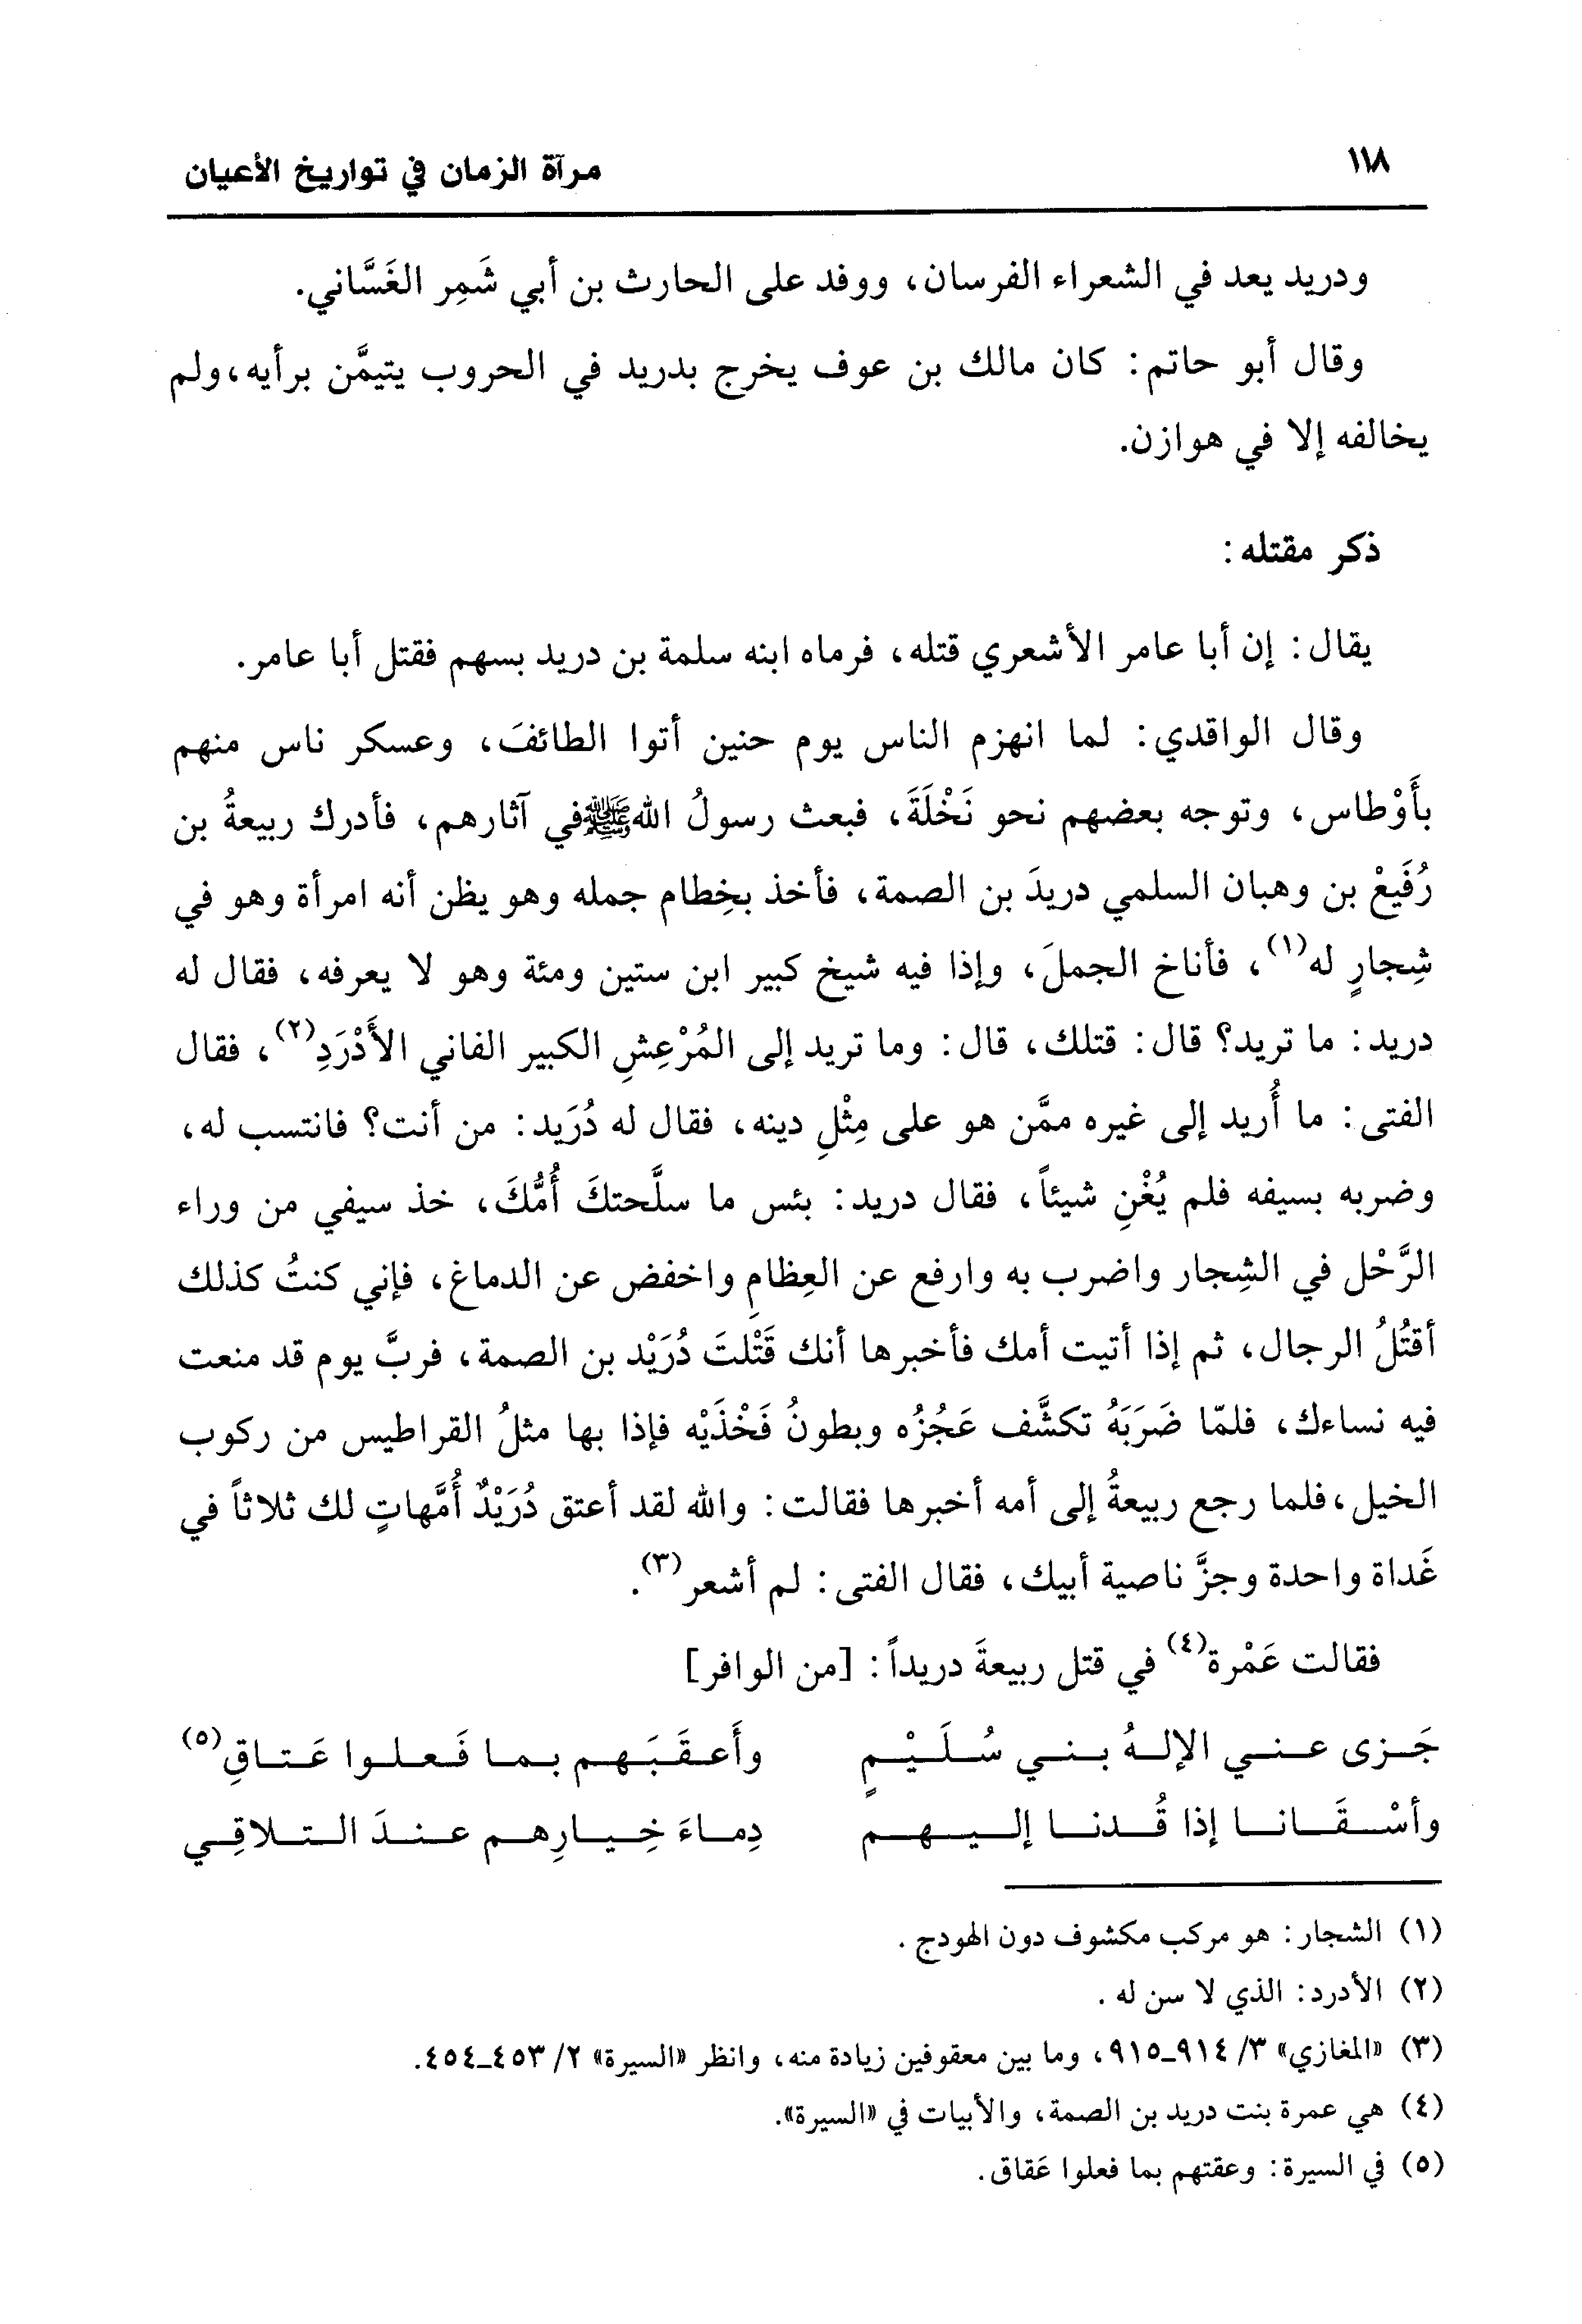 ١١٨
مرآة الزمان في تواريخ الأعيان
ودريد يعد في الشعراء الفرسان، ووفد على الحارث بن أبي شَمِر الغَسَّاني.
وقال أبو حاتم: كان مالك بن عوف يخرج بدريد في الحروب يتيمَّن برأيه، ولم
يخالفه إلا في هوازن.
ذكر مقتله:
يقال: إن أبا عامر الأشعري قتله، فرماه ابنه سلمة بن دريد بسهم فقتل أبا عامر.
وقال الواقدي: لما انهزم الناس يوم حنين أتوا الطائفَ، وعسكر ناس منهم
بأَوْطاس، وتوجه بعضهم نحو نَخْلَةَ، فبعث رسولُ الله ﷺ في آثارهم، فأدرك ربيعةُ بن
رُفَيعْ بن وهبان السلمي دريدَ بن الصمة، فأخذ بخِطام جمله وهو يظن أنه امرأة وهو في
شِجارٍ له(١)، فأناخ الجملَ، وإذا فيه شيخ كبير ابن ستين ومئة وهو لا يعرفه، فقال له
دريد: ما تريد؟ قال: قتلك، قال: وما تريد إلى المُرْعِشِ الكبير الفاني الأَدْرَدِ(٢)، فقال
الفتى: ما أُريد إلى غيره ممَّن هو على مِثْلِ دينه، فقال له دُرَيد: من أنت؟ فانتسب له،
وضربه بسيفه فلم يُغْنِ شيئاً، فقال دريد: بئس ما سلَّحتكَ أُمُّكَ، خذ سيفي من وراء
الرَّحْل في الشِجار واضرب به وارفع عن العِظامِ واخفض عن الدماغ، فإني كنتُ كذلك
أقتُلُ الرجال، ثم إذا أتيت أمك فأخبرها أنك قَتْلتَ دُرَيْد بن الصمة، فربَّ يوم قد منعت
فيه نساءك، فلمّا ضَرَبَهُ تكشَّف عَجُزُه وبطونُ فَخْذَيْه فإذا بها مثلُ القراطيس من ركوب
الخيل، فلما رجع ربيعةُ إلى أمه أخبرها فقالت: والله لقد أعتق دُرَيْدٌ أُمَّهاتٍ لك ثلاثاً في
غَداة واحدة وجزَّ ناصية أبيك، فقال الفتى: لم أشعر(٣).
فقالت عَمْرة(٤) في قتل ربيعةَ دريداً: [من الوافر]
جَزى عني الإلهُ بني سُلَيْمٍ وأَعقَبَهم بما فَعلوا عَتاقِ(٥)
وأسْقَانا إذا قُدنا إليهم دِماءَ خِيارِهم عندَ التلاقِي
(١) الشجار: هو مركب مكشوف دون الهودج.
(٢) الأدرد: الذي لا سن له.
(٣) «المغازي» ٣/ ٩١٤_٩١٥، وما بين معقوفين زيادة منه، وانظر «السيرة» ٢/ ٤٥٣_٤٥٤.
(٤) هي عمرة بنت دريد بن الصمة، والأبيات في «السيرة».
(٥) في السيرة: وعقتهم بما فعلوا عَقاق.